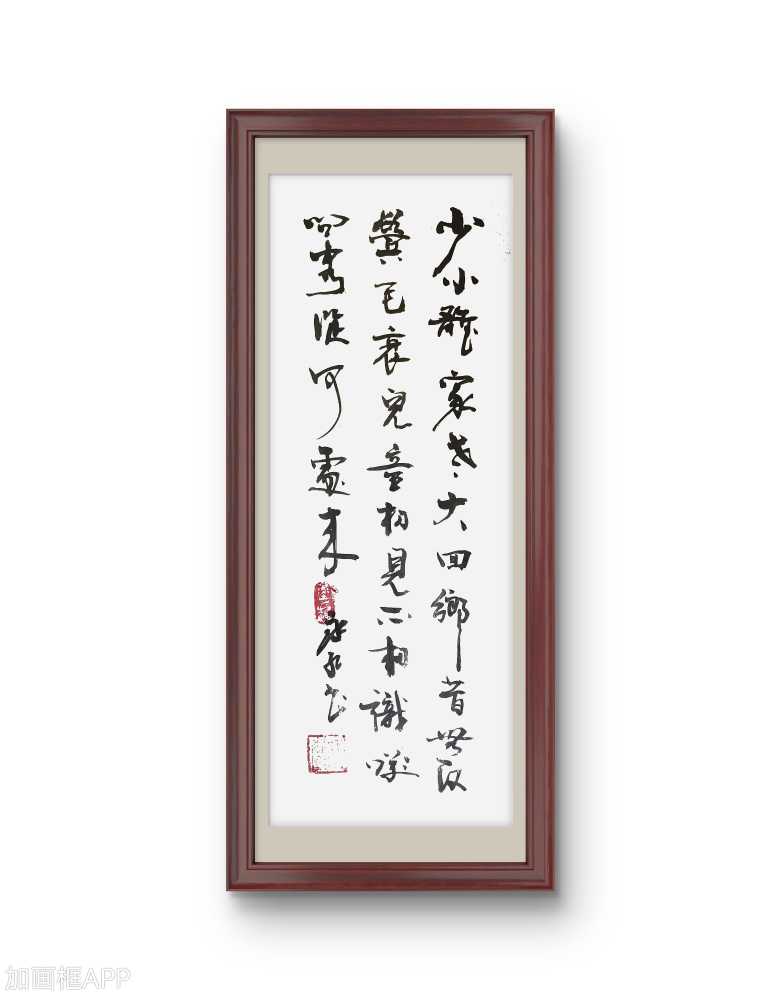 少小離家老大回鄉音無改
鬢毛衰兒童相見不相識咲
問客從何處來
書
加画框APP